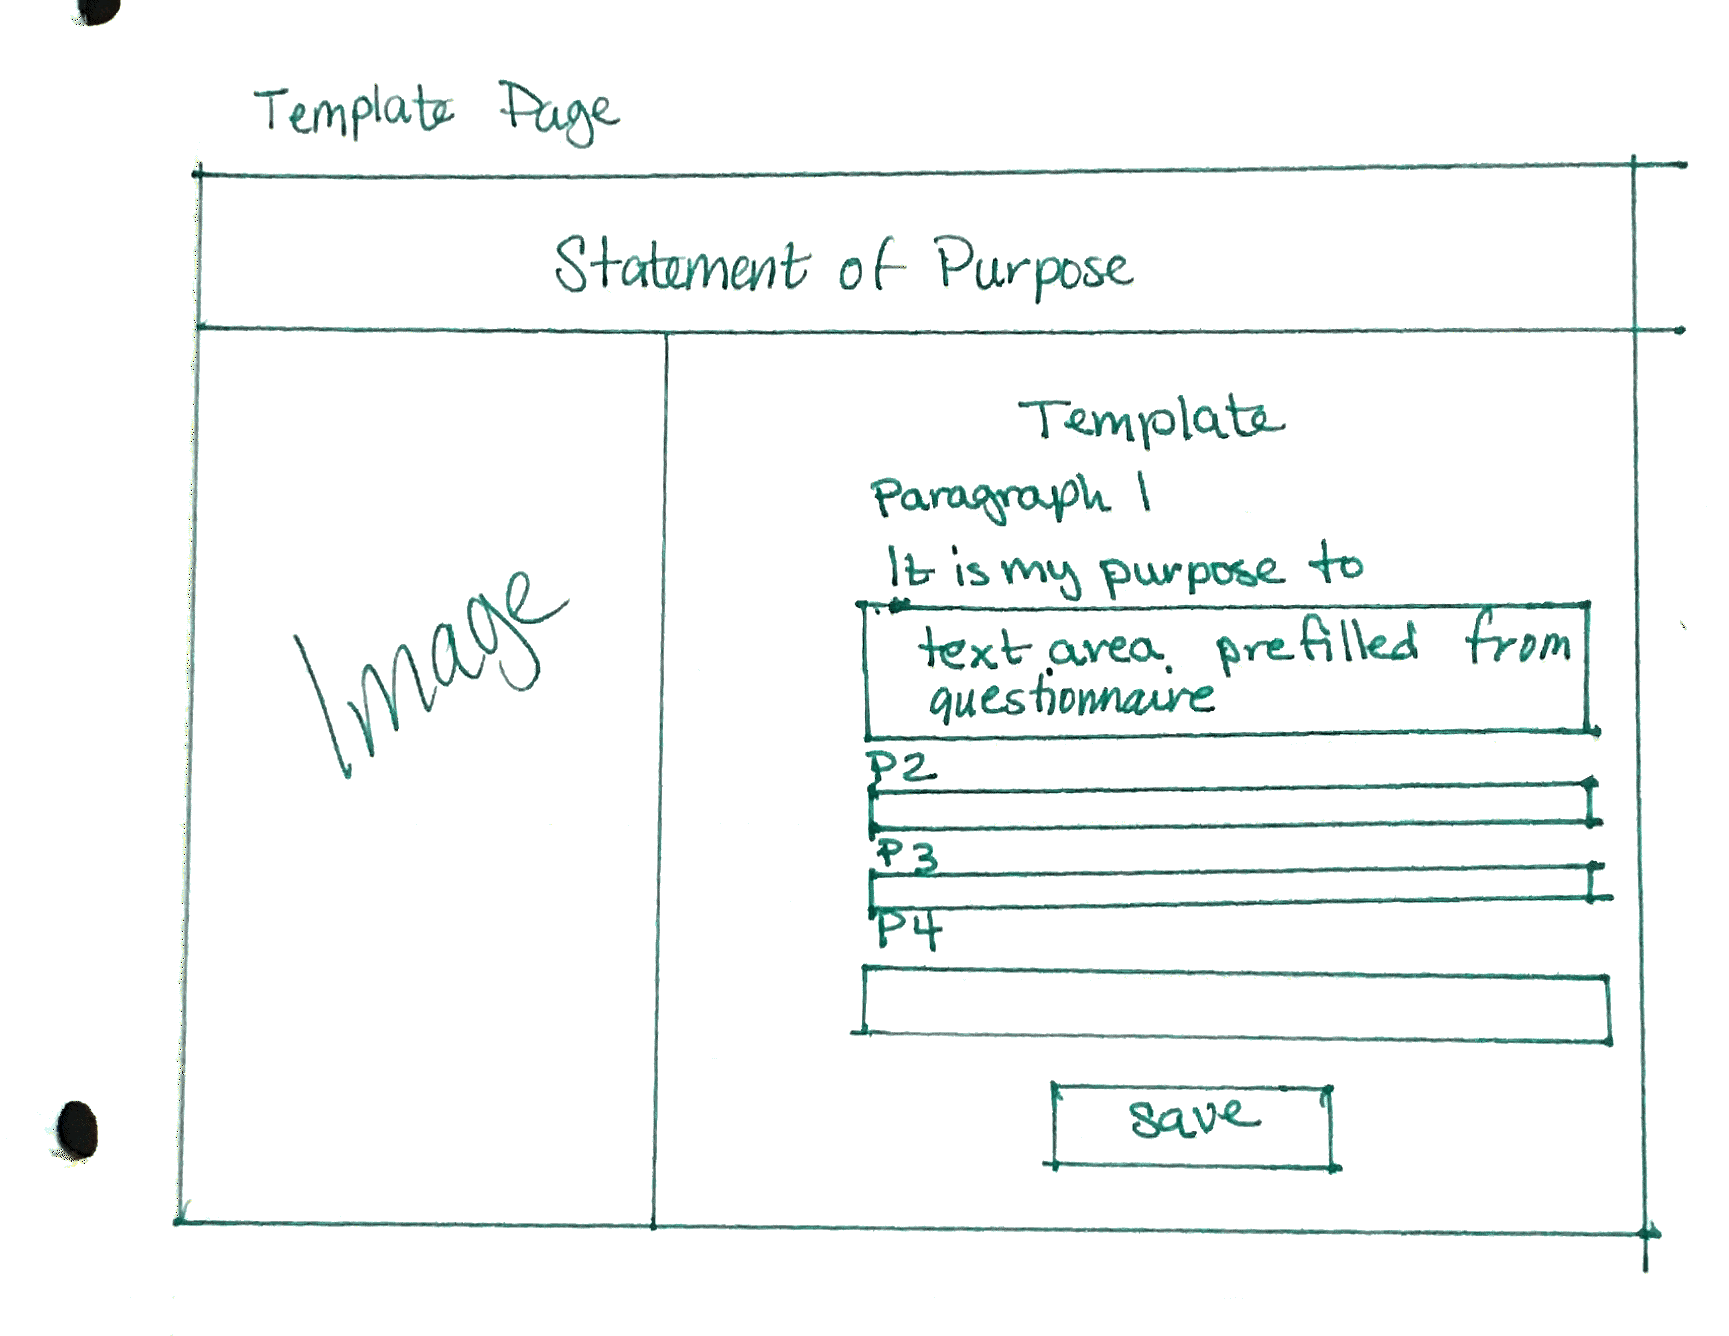 Template Page
Statement of Purpose
Image
Template
Paragraph 1
It is my purpose to
text area prefilled from
questionnaire
P2
P3
P4
save